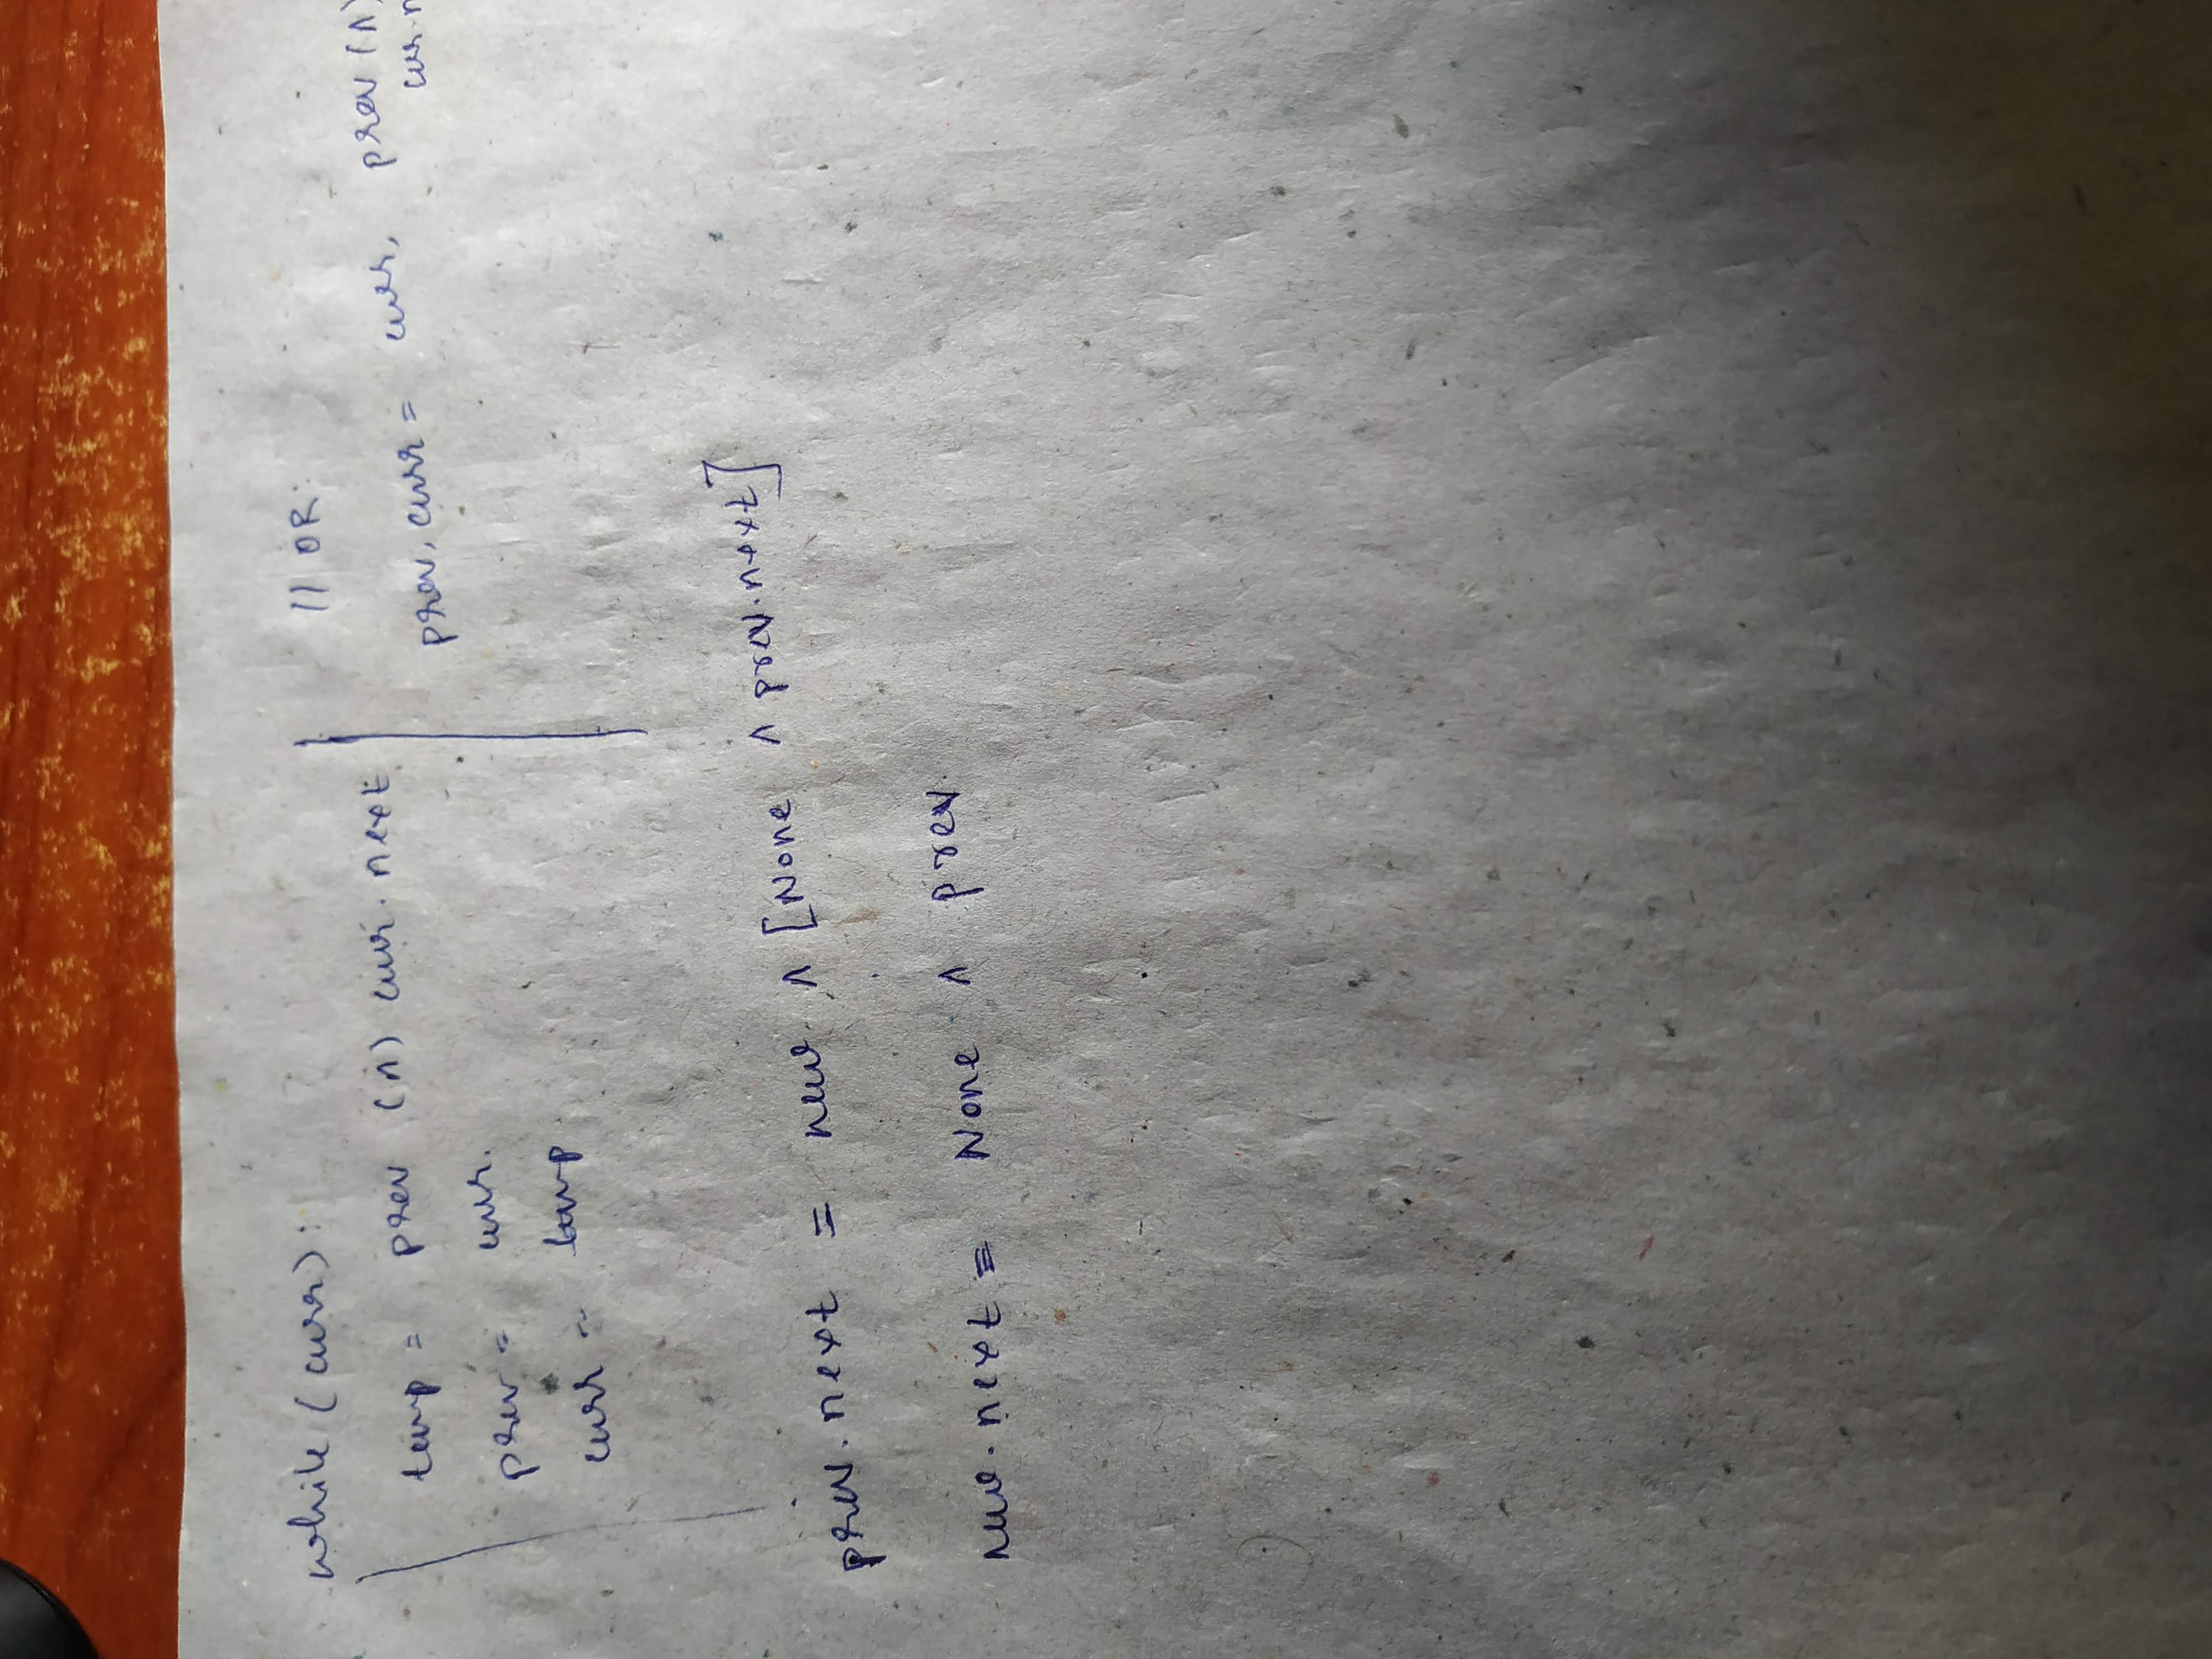 while (curr):
temp = prev (^) curr.next
prev = curr.
curr = temp
// OR:
prev, curr = curr, prev (^)
curr.n
prev.next = new ^ [None ^ prev.next]
new.next = None ^ prev